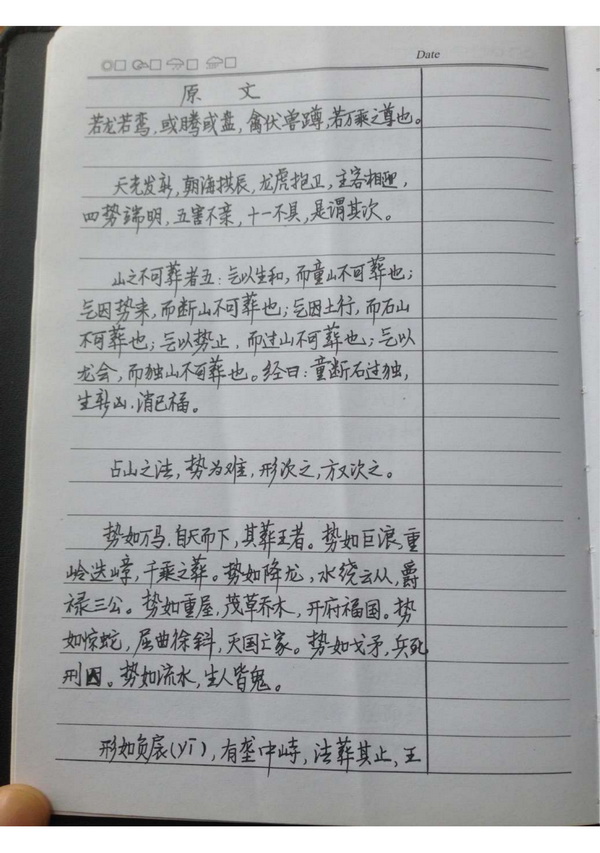 Date
原 文
若龙若鸾,或腾或盘,禽伏兽蹲,若万乘之尊也。
天光发新,朝海拱辰,龙虎抱卫,主客相迎,
四势端明,五害不亲,十一不具,是谓其次。
山之不可葬者五:气以生和,而童山不可葬也;
气因势来,而断山不可葬也;气因土行,而石山
不可葬也;气以势止,而过山不可葬也;气以
龙会,而独山不可葬也。经曰:童断石过独,
生新凶,消已福。
占山之法,势为难,形次之,方又次之。
势如万马,自天而下,其葬王者。势如巨浪,重
岭迭嶂,千乘之葬。势如降龙,水绕云从,爵
禄三公。势如重屋,茂草乔木,开府福国。势
如惊蛇,屈曲徐斜,灭国亡家。势如戈矛,兵死
刑囚。势如流水,生人皆鬼。
形如负扆(yǐ),有垄中峙,法葬其止,王